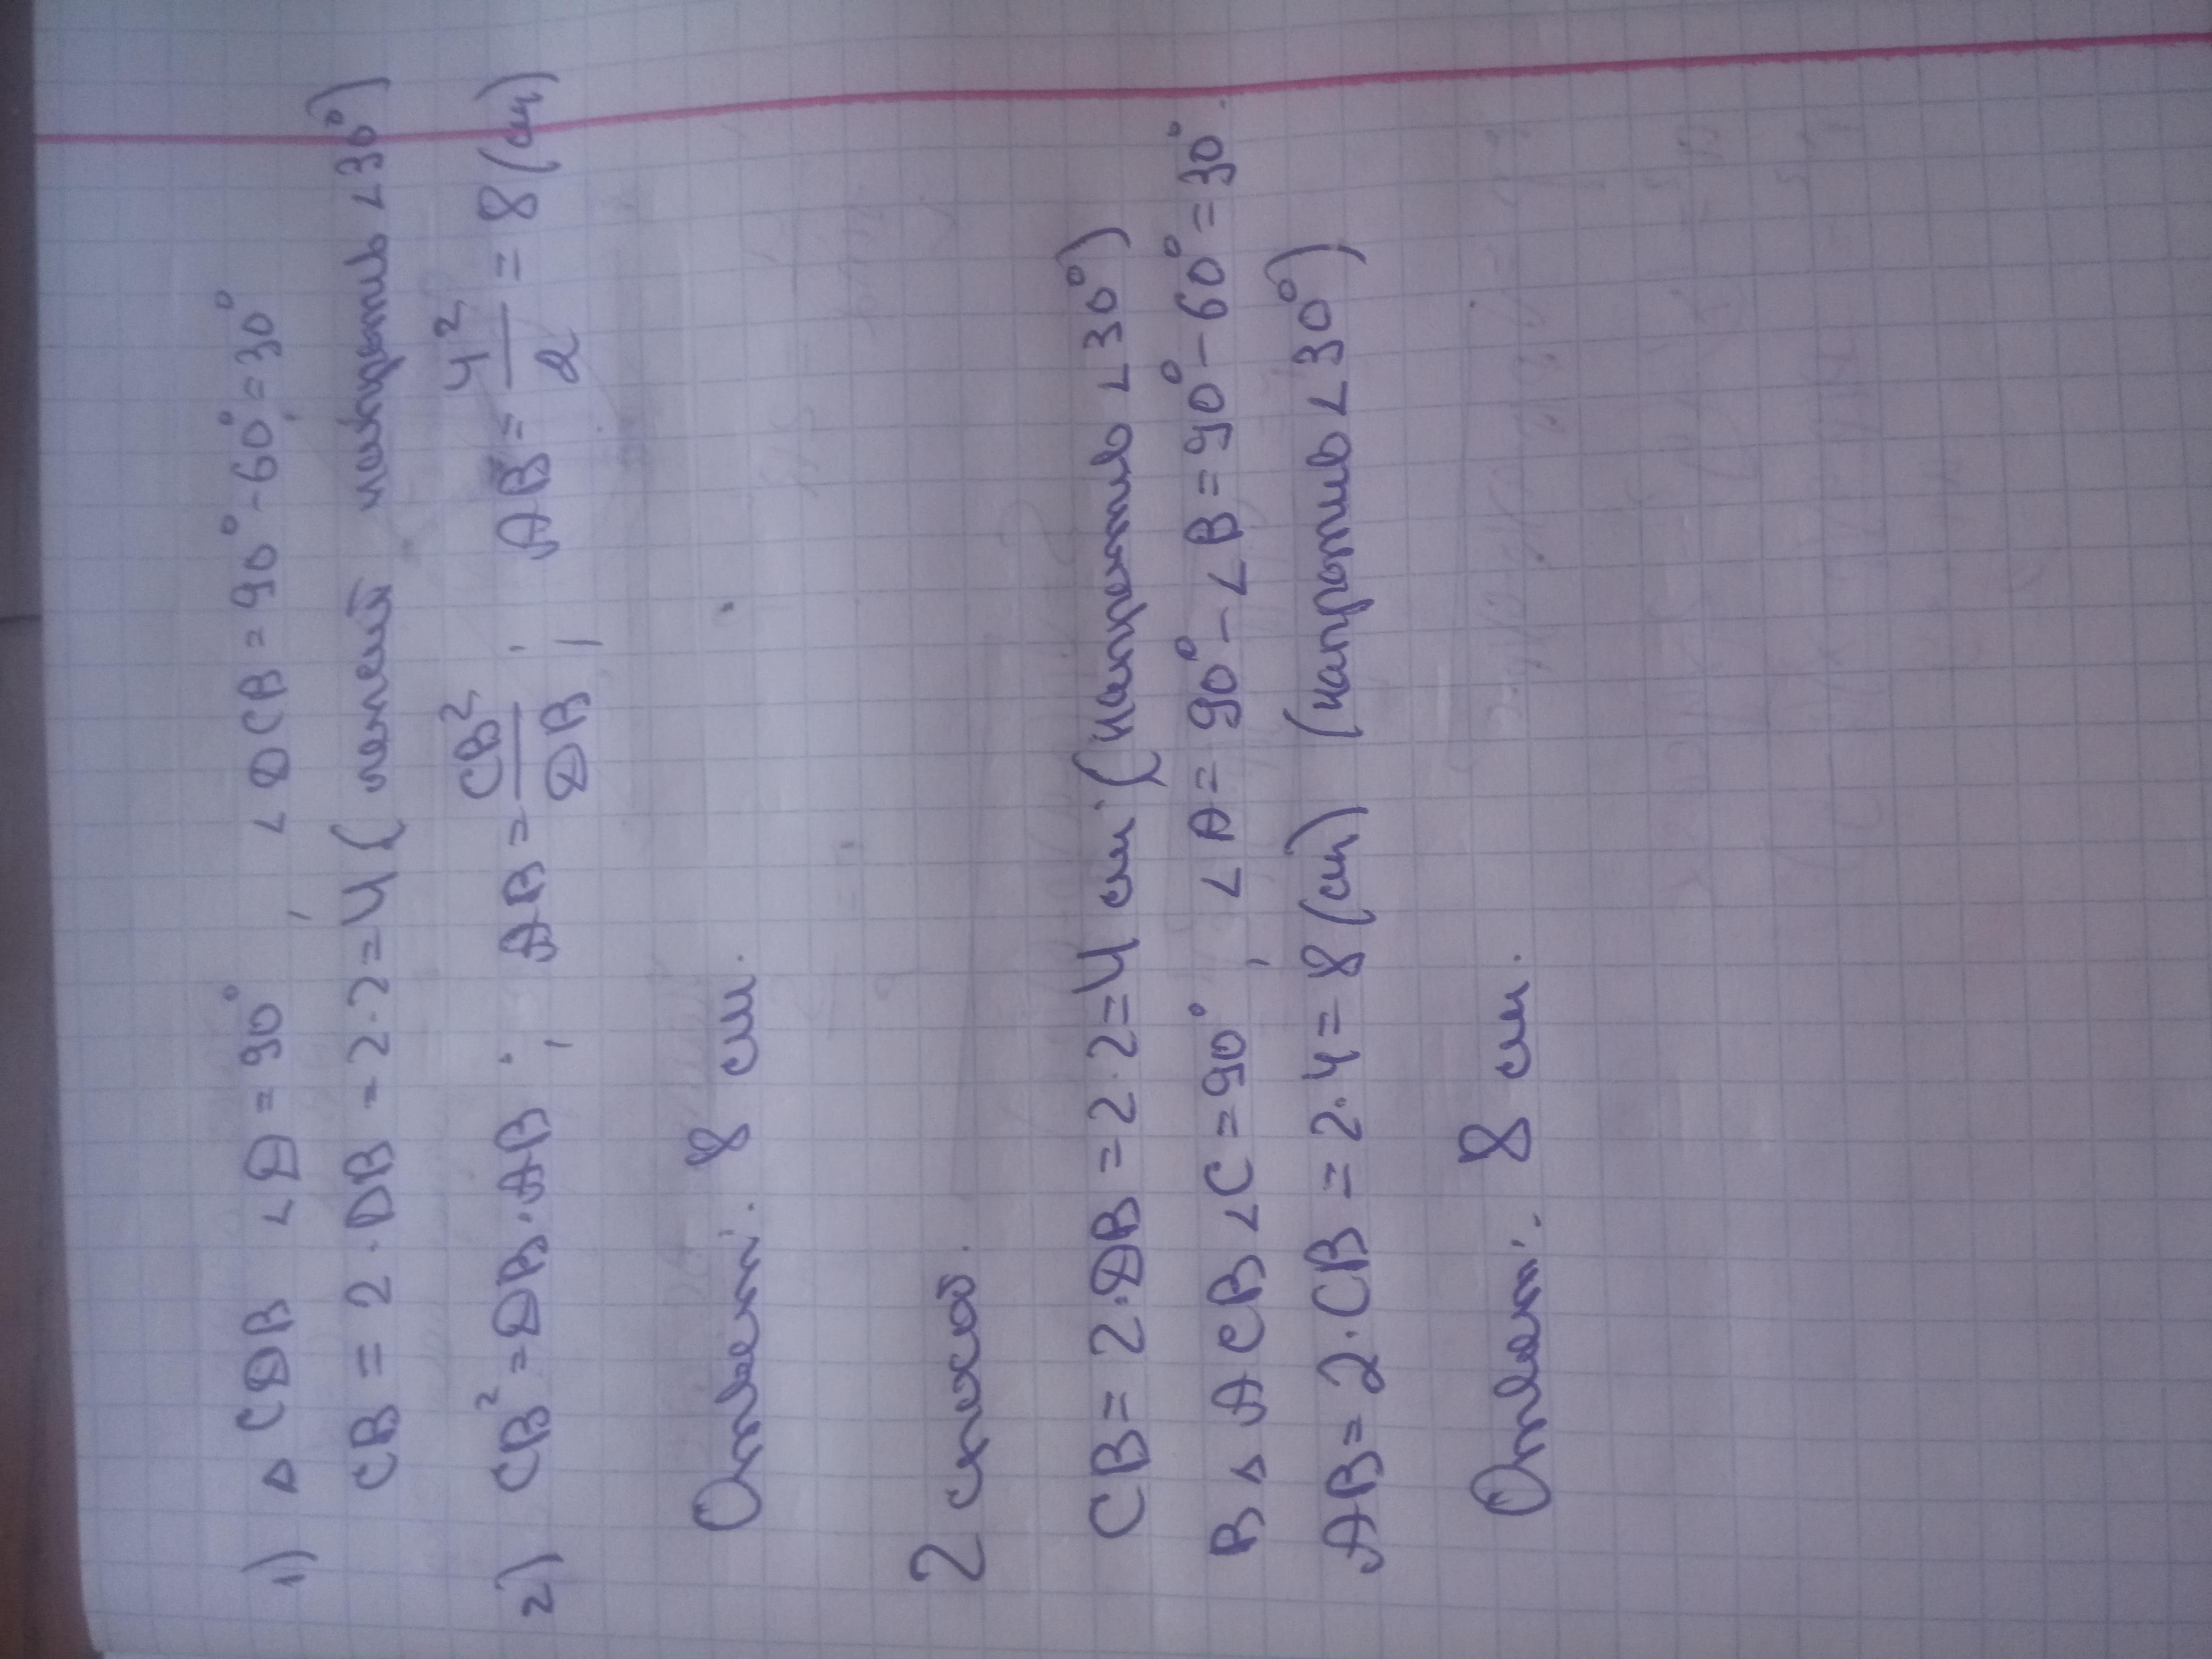 1) △ CDB ∠D = 90°, ∠DCB = 90° - 60° = 30°
CB = 2 · DB = 2 · 2 = 4 (лежит напротив ∠30°)
2) CB² = DB · AB ; AB = CB²/DB ; AB = 4²/2 = 8 (см)
Ответ: 8 см.
2 способ.
CB = 2 · DB = 2 · 2 = 4 см. (напротив ∠30°)
В △ ACB ∠C = 90°, ∠A = 90° - ∠B = 90° - 60° = 30°.
AB = 2 · CB = 2 · 4 = 8 (см) (напротив ∠30°)
Ответ: 8 см.